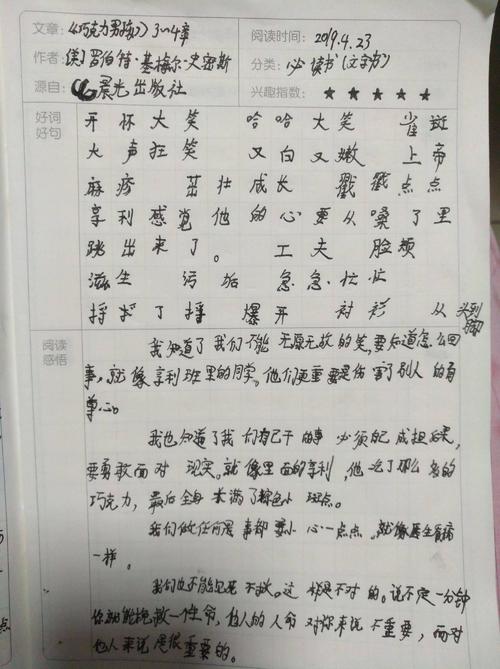 文章：《巧克力男孩》3~4章 阅读时间：2019.4.23
作者：(美)罗伯特·基梅尔·史密斯 分类：必读书(文学书)
源自：晨光出版社 兴趣指数：★ ★ ★ ★ ★
好词好句
开怀大笑 哈哈大笑 雀斑
大声狂笑 又白又嫩 上帝
麻疹 茁壮成长 戳戳点点
亨利感觉他的心要从嗓了里
跳出来了。 工夫 脸颊
滋生 污垢 急急忙忙
捋了捋 爆开 衬衫 从头到脚
阅读感悟
我知道了我们不能无原无故的笑，要知道怎么回
事，就像亨利班里的同学。他们更重要是伤害了别人的自
尊心。
我也知道了我们自己干的事必须自己成担后果，
要勇敢面对现实。就像里面的亨利，他吃了那么多的
巧克力，最后全身长满了棕色小斑点。
我们做任何事都要小心一点点，就像医生看病
一样。
我们也不能见死不救。这样是不对的。说不定一分钟
你就能挽救一个生命，他人的人命对你来说不重要，而对
他人来说是很重要的。